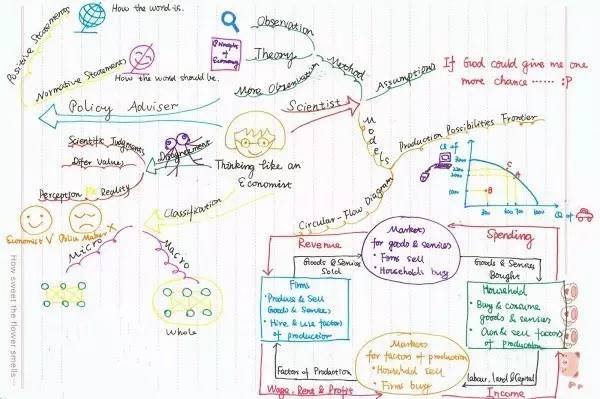 How the word is.
Positive Statements
Normative Statements
How the word should be.
Policy Adviser
Observation
Principles of Economy
Theory
More Observation
Method
Scientist
Assumptions
If God could give me one
more chance ...... :P
Models
Production Possibilities Frontier
Circular-Flow Diagram
Scientific Judgments
Differ Values
Perception Vs Reality
Disagreement
Thinking like an
Economist
Classification
Economist V
Policy Maker X
Micro
Macro
Whole
How sweet the flower smells.
Q1 of
3000
2200
2000
1000
A
C
B
300
600
700
1000
Q2 of
Markets
for goods & services
• Firms sell
• Households buy
Revenue
Spending
Goods & Services
Sold
Goods & Services
Bought
Firms
• Produce & Sell
Goods & Services
• Hire & use factors
of production
Household
• Buy & consume
goods & services
• Own & sell factors
of production
Markets
for factors of production
• Household sell
• Firms buy
Factors of Production
Labour, land & Capital
Wage, Rent & Profit
Income